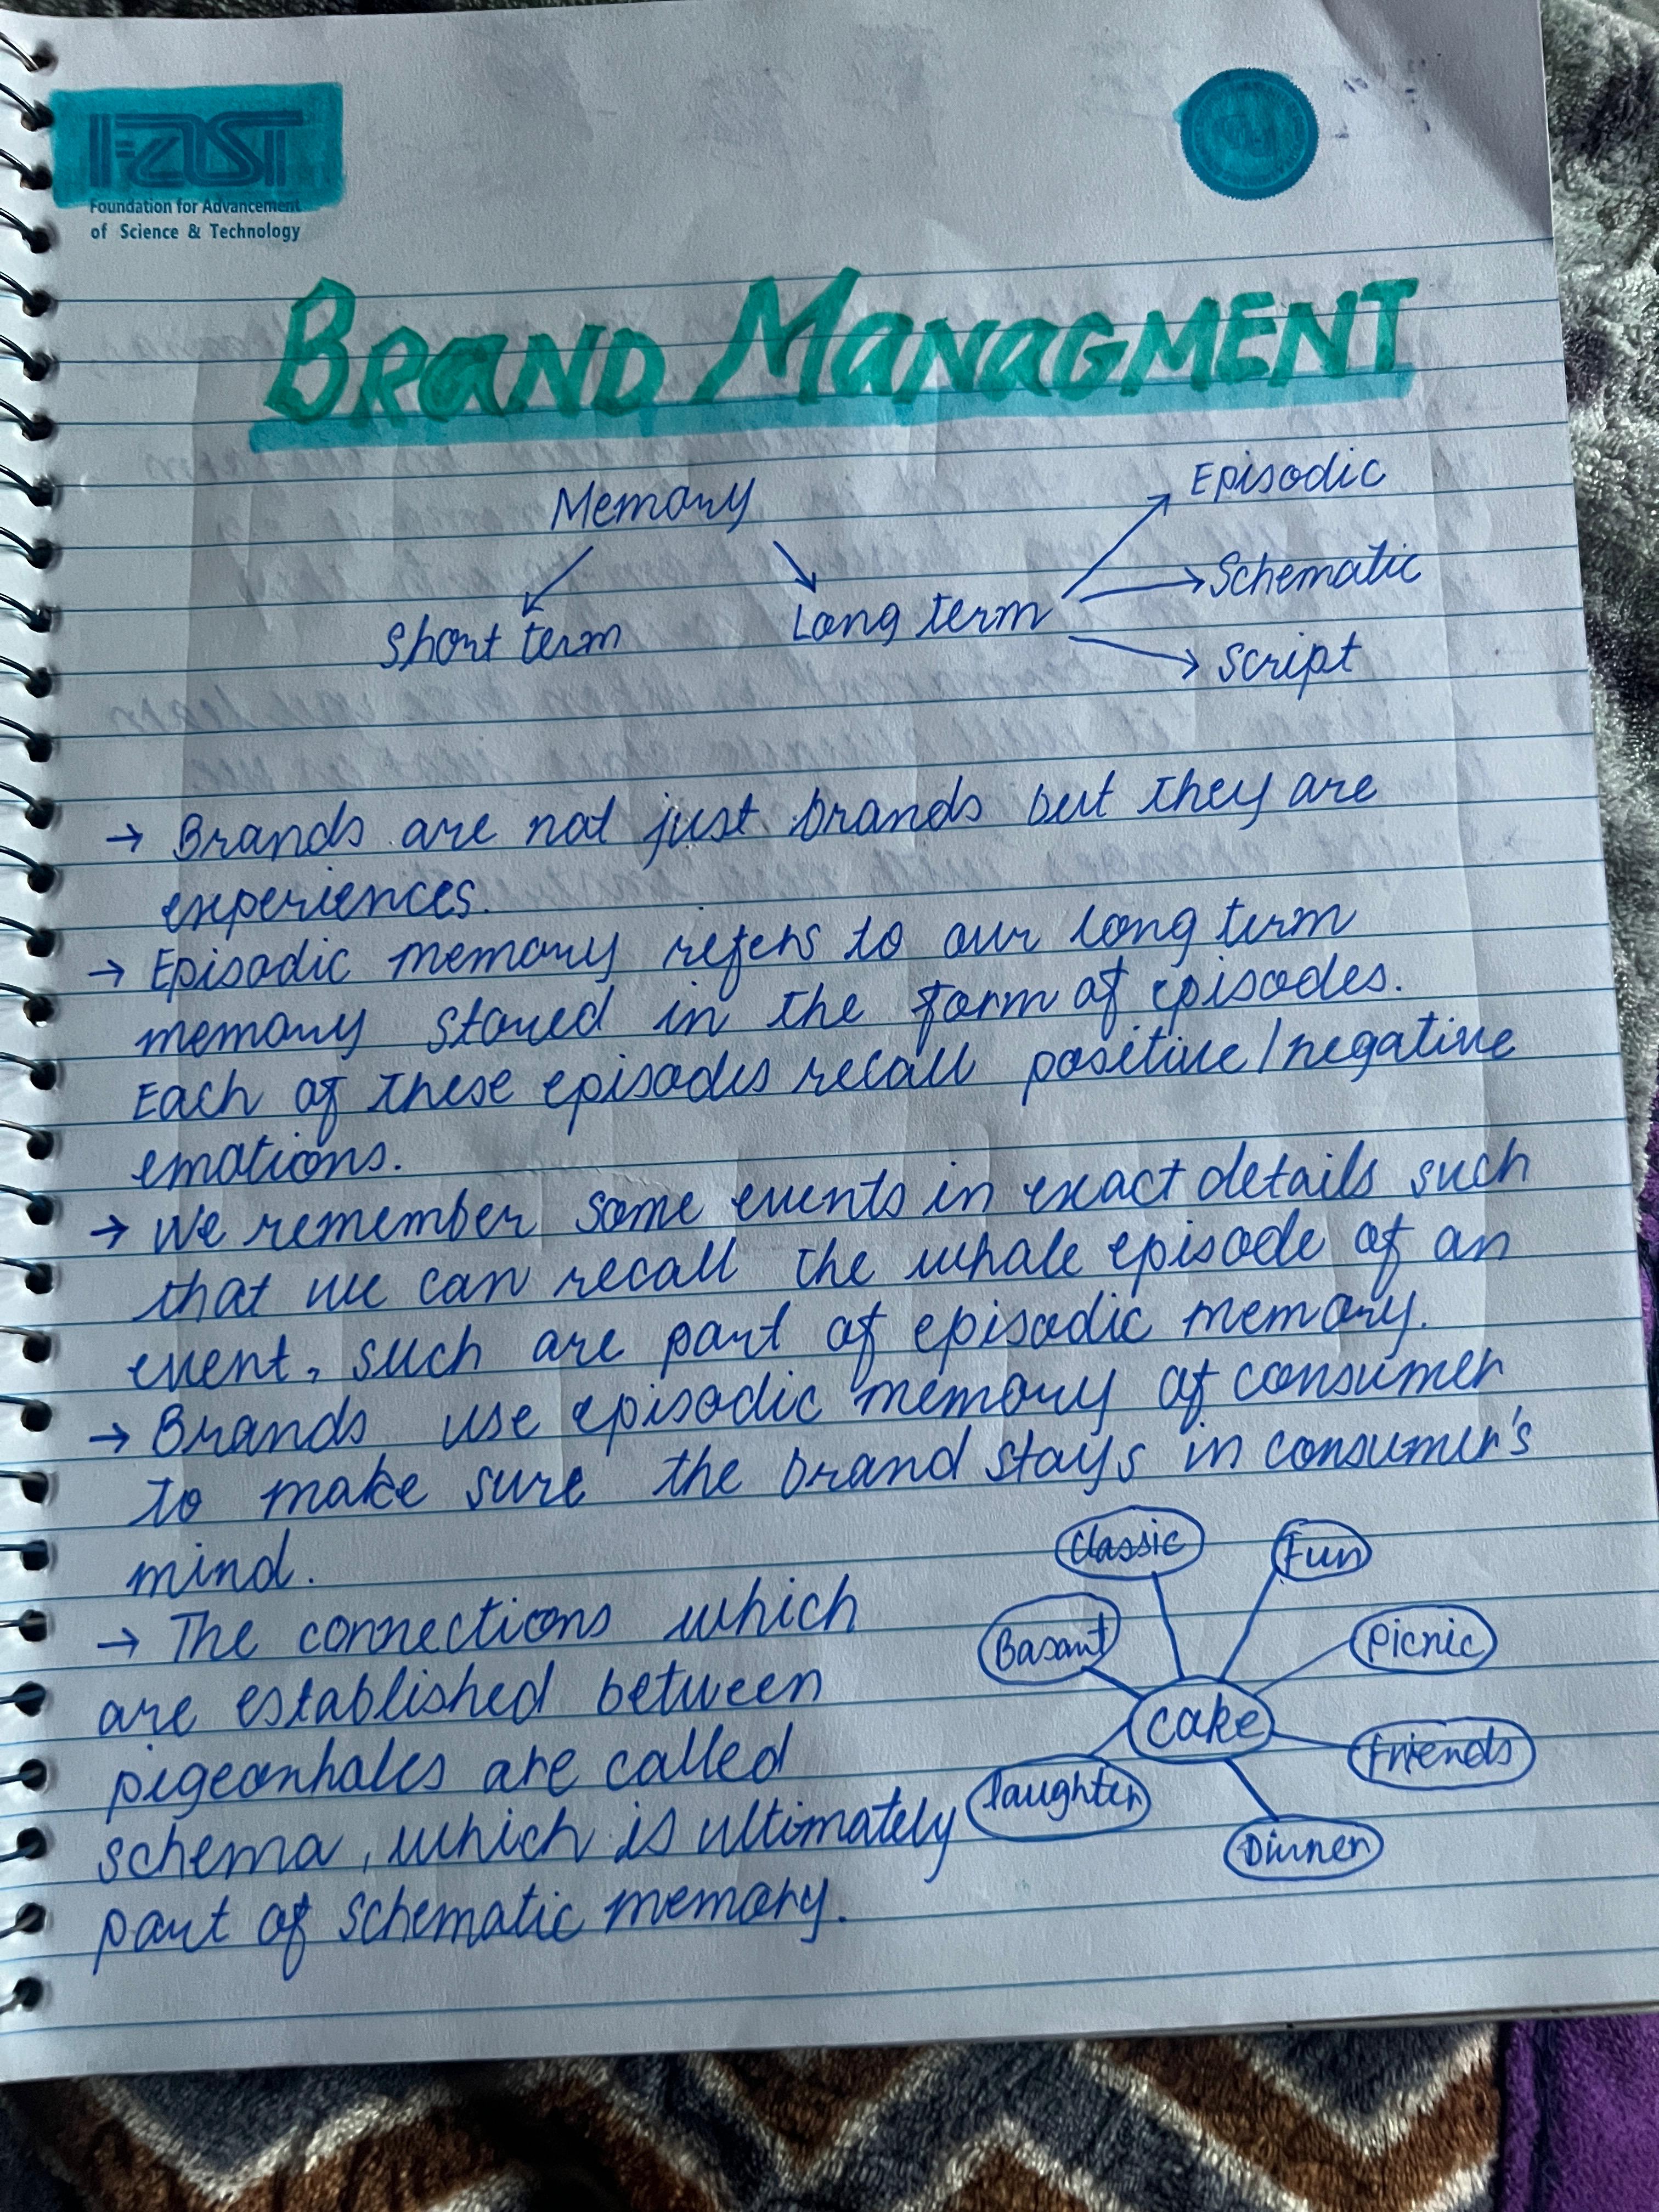 FAST
Foundation for Advancement
of Science & Technology
BRAND MANAGMENT
Memory
Short term
Long term
Episodic
Schematic
Script
→ Brands are not just brands but they are
experiences.
→ Episodic memory refers to our long term
memory stored in the form of episodes.
Each of these episodes recall positive/negative
emotions.
→ We remember some events in exact details such
that we can recall the whole episode of an
event, such are part of episodic memory.
→ Brands use episodic memory of consumer
to make sure the brand stays in consumer's
mind.
→ The connections which
are established between
pigeonholes are called
schema, which is ultimately
part of schematic memory.
Classic
Fun
Basant
Picnic
Cake
Friends
laughter
Dinner